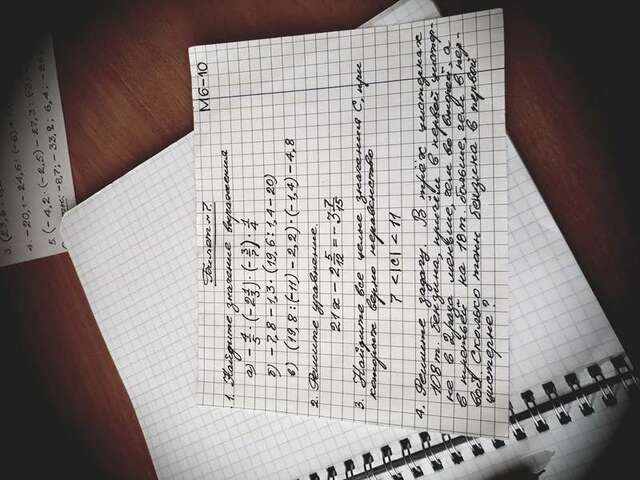 3. (23,6
4. -20,1 - 24,6 : (-6)
5. (-4,2 · (-2,5) - 27,3 : (-3)
-8,7; -33,2; 6,4;
М6-10
Билет № 7.
1. Найдите значение выражения
а) -4/5 · (-2 1/3) · (-3/7) · 1/4
б) -7,8 - 1,3 · (19,6 : 1,4 - 20)
в) (19,8 : (-11) - 2,2) · (-1,4) - 4,8
2. Решите уравнение.
21x - 2 5/12 = -3 7/15
3. Найдите все целые значения С, при
которых верно неравенство
7 < |c| < 11
4. Решите задачу. В трёх цистернах
108т. бензина, причём в первой цистер-
не в 2 раза меньше, чем во второй, а
в третьей на 18т. больше, чем в пер-
вой. Сколько тонн бензина в первой
цистерне?